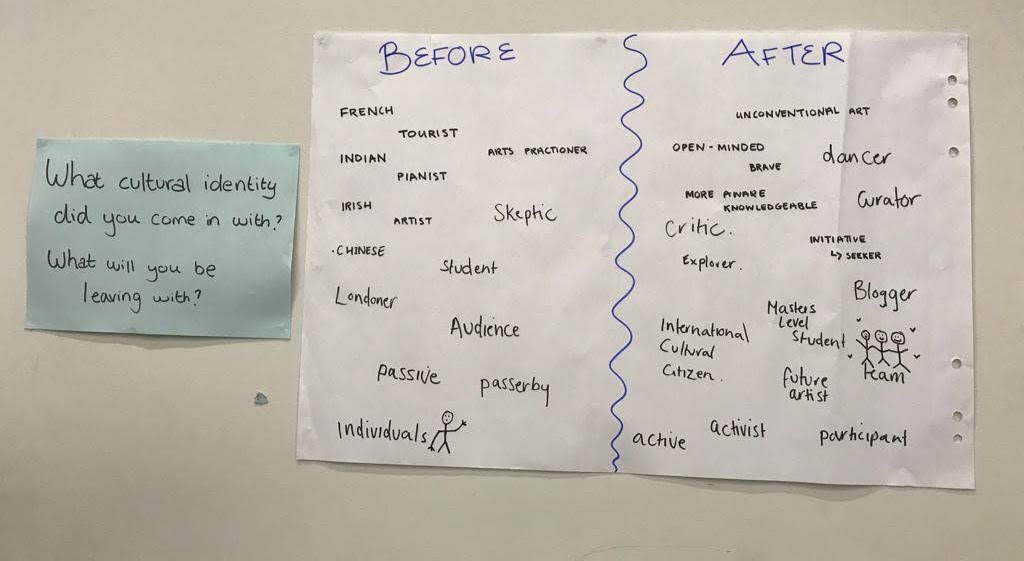 What cultural identity
did you come in with?
What will you be
leaving with?
BEFORE
FRENCH
TOURIST
INDIAN
ARTS PRACTIONER
PIANIST
IRISH
ARTIST
Skeptic
.CHINESE
Student
Londoner
Audience
passive
passerby
Individuals
AFTER
UNCONVENTIONAL ART
OPEN-MINDED
BRAVE
dancer
MORE AWARE
KNOWLEDGEABLE
Curator
Critic.
INITIATIVE
↳ SEEKER
Explorer.
Blogger
Masters
Level
Student
International
Cultural
Citizen.
team
future
artist
active
activist
participant